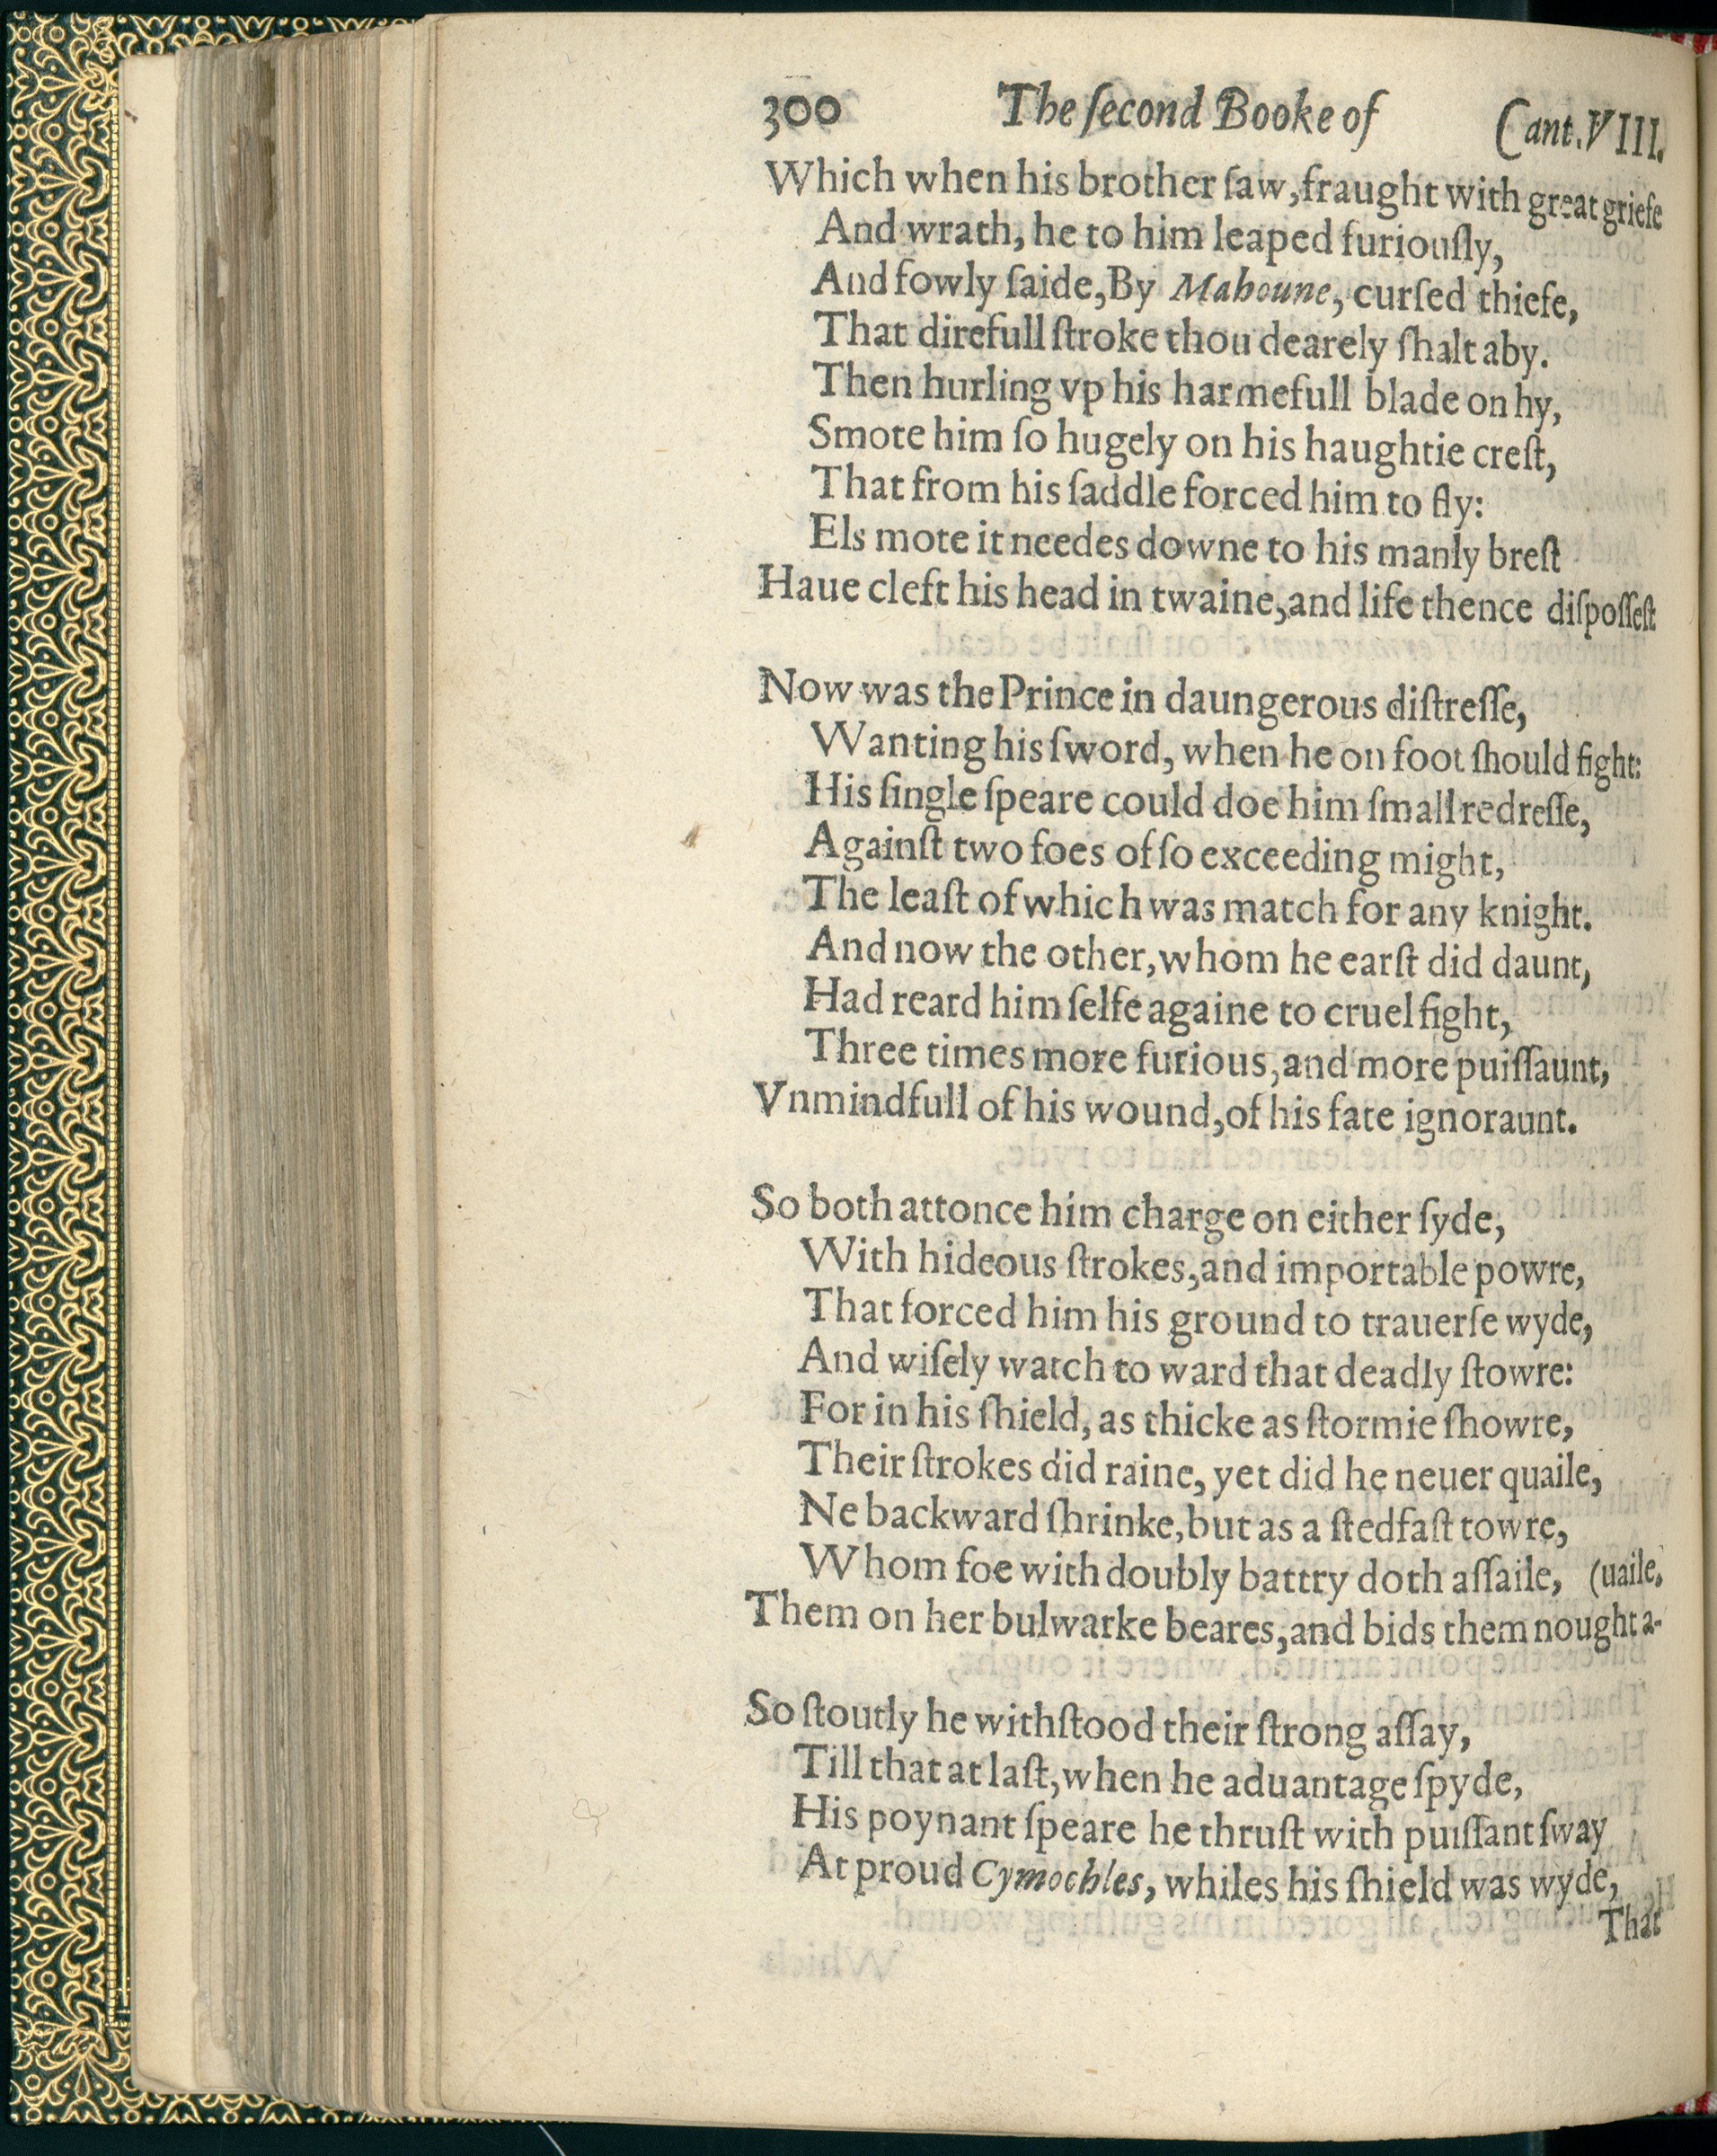 300 The ſecond Booke of Cant. VIII.
Which when his brother ſaw, fraught with great griefe
And wrath, he to him leaped furiouſly,
And fowly ſaide, By Mahoune, curſed thiefe,
That direfull ſtroke thou dearely ſhalt aby.
Then hurling vp his harmefull blade on hy,
Smote him ſo hugely on his haughtie creſt,
That from his ſaddle forced him to fly:
Els mote it needes downe to his manly breſt
Haue cleft his head in twaine, and life thence diſpoſſeſt
Now was the Prince in daungerous diſtreſſe,
Wanting his ſword, when he on foot ſhould fight:
His ſingle ſpeare could doe him ſmall redreſſe,
Againſt two foes of ſo exceeding might,
The leaſt of which was match for any knight.
And now the other, whom he earſt did daunt,
Had reard him ſelfe againe to cruel fight,
Three times more furious, and more puiſſaunt,
Vnmindfull of his wound, of his fate ignoraunt.
So both attonce him charge on either ſyde,
With hideous ſtrokes, and importable powre,
That forced him his ground to trauerſe wyde,
And wiſely watch to ward that deadly ſtowre:
For in his ſhield, as thicke as ſtormie ſhowre,
Their ſtrokes did raine, yet did he neuer quaile,
Ne backward ſhrinke, but as a ſtedfaſt towre,
Whom foe with doubly battry doth aſſaile, (uaile,
Them on her bulwarke beares, and bids them nought a-
So ſtoutly he withſtood their ſtrong aſſay,
Till that at laſt, when he aduantage ſpyde,
His poynant ſpeare he thruſt with puiſſant ſway
At proud Cymochles, whiles his ſhield was wyde,
That